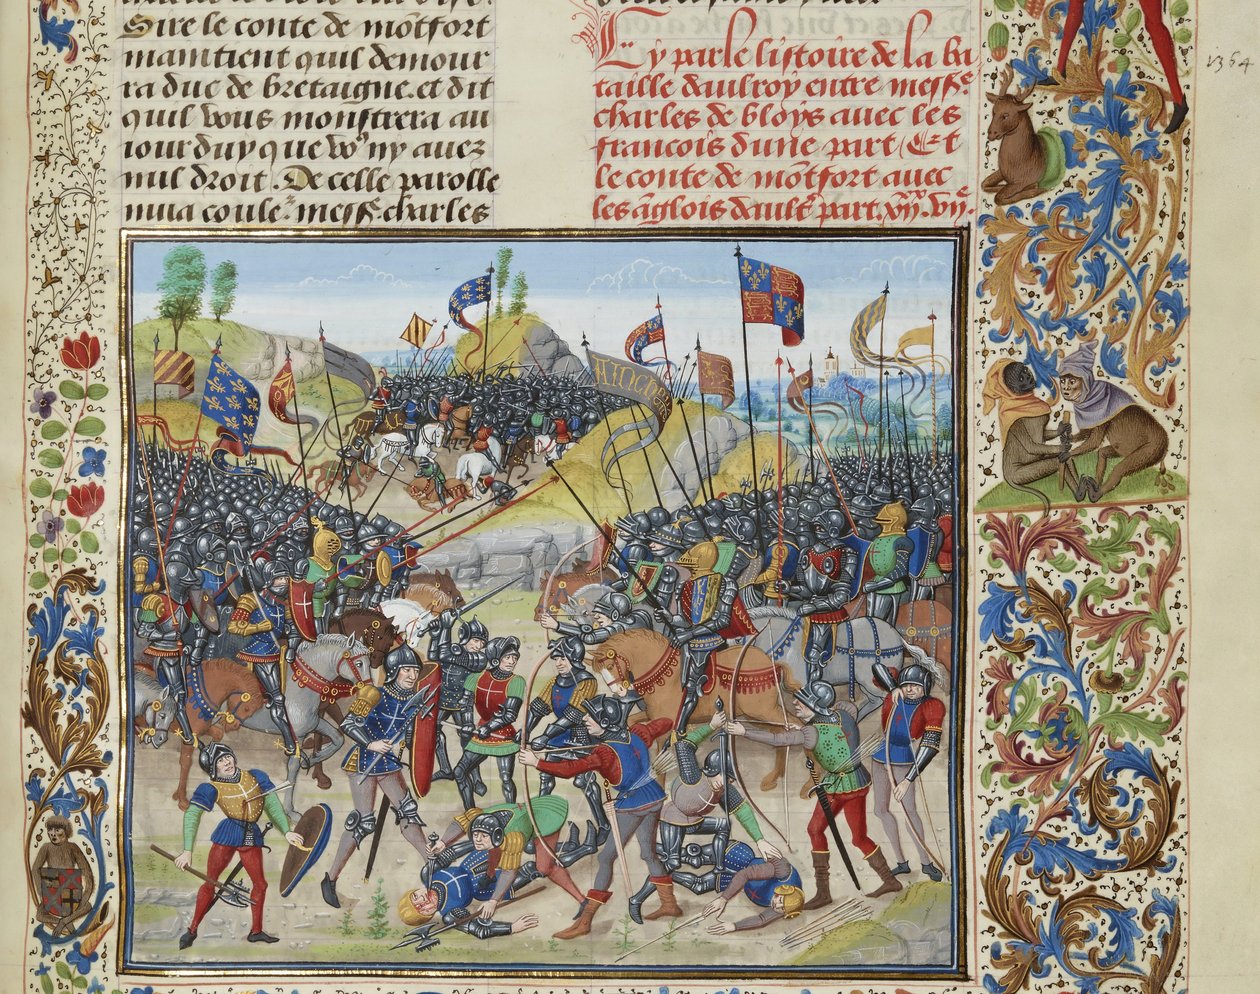 Sire le conte de mõtfort
maintient quil demour
ra duc de bretaigne. et dit
quil vous monstrera au
iour duy que vo⁹ ny auez
nul droit. De celle parolle
mua coule᷑ messe᷑ charles
Cy parle listoire de la ba
taille daulroy entre messe᷑
charles de bloys auec les
francois dune part Et
le conte de mõtfort auec
les ãglois dault᷑ part.
1364